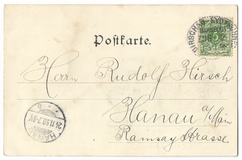 Postkarte.
Herrn Rudolf Hirsch
Hanau a/Main
Ramsaystrasse.